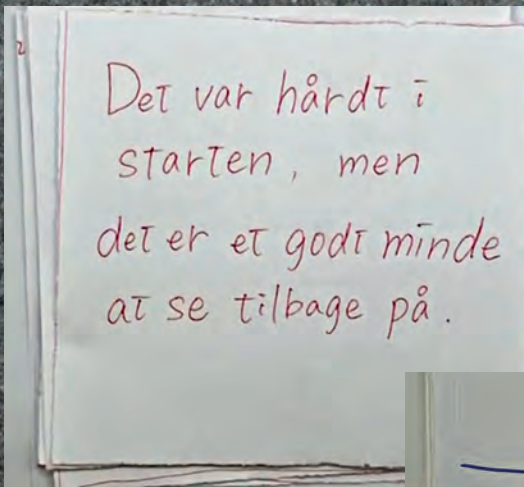 Det var hårdt i
starten, men
det er et godt minde
at se tilbage på.